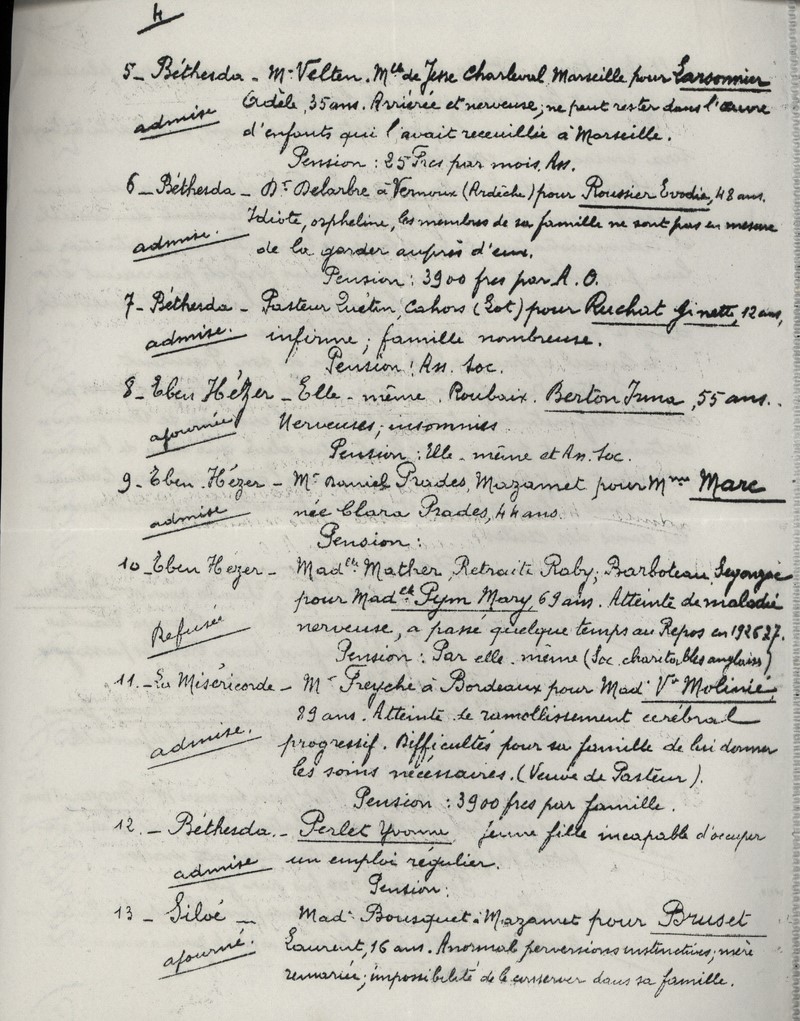 4
5 - Béthesda - Mr Velten. Mlle de Jesse Charleval Marseille pour Larsonnier
admise
Adèle, 35 ans. Arriérée et nerveuse; ne peut rester dans l'œuvre
d'enfants qui l'avait receuillie à Marseille.
Pension : 25 Frcs par mois. Ass.
6 - Béthesda - Dr Delarbre à Vernoux (Ardèche) pour Roussier Evodie, 48 ans.
admise.
Idiote, orpheline, les membres de sa famille ne sont pas en mesure
de la garder auprès d'eux.
Pension : 3900 frcs par A. O.
7 - Béthesda - Pasteur Quétin, Cahors (Lot) pour Ruchat Ginette, 12 ans,
admise.
infirme ; famille nombreuse.
Pension : Ass. Soc.
8 - Eben Hézer - Elle-même. Roubaix. Berton Irma, 55 ans.
ajournée
Nerveuse, insomnies.
Pension : Elle-même et Ass. Soc.
9 - Eben.Hézer - Mr Daniel Prades, Mazamet pour Mme Marc
admise
née Clara Prades, 44 ans.
Pension :
10 - Eben Hézer - Madelle Mather, Retraite Raby, Barboteau, Segonzac
pour Madelle Pym Mary, 69 ans. Atteinte de maladie
Refusée
nerveuse, a passé quelque temps au Repos en 192627.
Pension : Par elle-même (Soc. charitables anglaises)
11. - La Miséricorde - Mr Freyche à Bordeaux pour Mad. Vve Molinié,
admise.
89 ans. Atteinte de ramollissement cérébral
progressif. Difficultés pour sa famille de lui donner
les soins nécessaires. (Veuve de Pasteur).
Pension : 3900 frcs par famille.
12. - Béthesda. - Perlet Yvonne, jeune fille incapable d'occuper
admise
un emploi régulier.
Pension :
13 - Siloé - Mad. Bousquet à Mazamet pour Bruset
ajourné.
Laurent, 16 ans. Anormal perversions instinctives, mère
remariée ; impossibilité de le conserver dans sa famille.